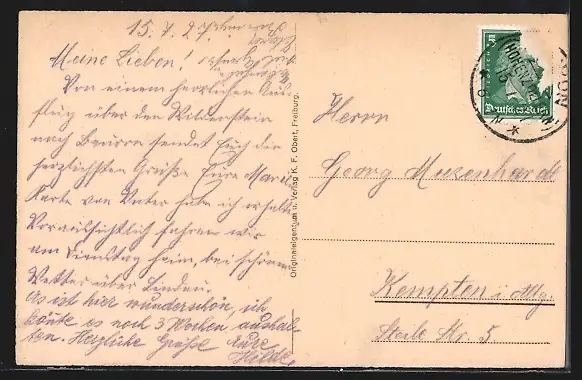 15. 7. 27.
Meine Lieben!
Von einem herrlichen Aus-
flug über den Wildenstein
nach Beuron sendet Euch die
herzlichsten Grüße Eure Marie
Karte von Vater habe ich erhalten
Voraussichtlich fahren wir
am Dienstag heim, bei schönem
Wetter über Lindau.
Es ist hier wunderschön, ich
könte es noch 3 Wochen aushal-
ten. Herzliche Grüße Eure
Hilde.
Originaleigentum u. Verlag K. F. Obert, Freiburg.
Deutsches Reich
Herrn
Georg Muzenhardt
Kempten i. Allg.
Steile Str. 5